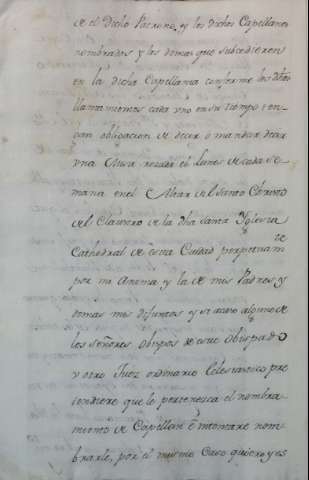 de el Dicho Patrono, y los dichos Capellanes
nombrados y los demas que subcedieren
en la dicha Capellania conforme los dhõs
llamamientos cada vno en su tiempo ten-
gan obligacion de decir o mandar decir
vna Misa rezada el Lunes de cada Se-
mana en el Altar del Santo Christo
del Claustro de la dha Santa Yglesia
Cathedral de esta Ciudad perpetuam.te
por mi Anima y la de mis Padres y
demas mis difuntos y si acaso alguno de
los señores Obispos de este Obispado
v otro Juez ordinario Eclesiastico pre
tendiere que le pertenezca el nombra-
miento de Capellan è montare nom-
brarle, por el mismo Caso quiero y es